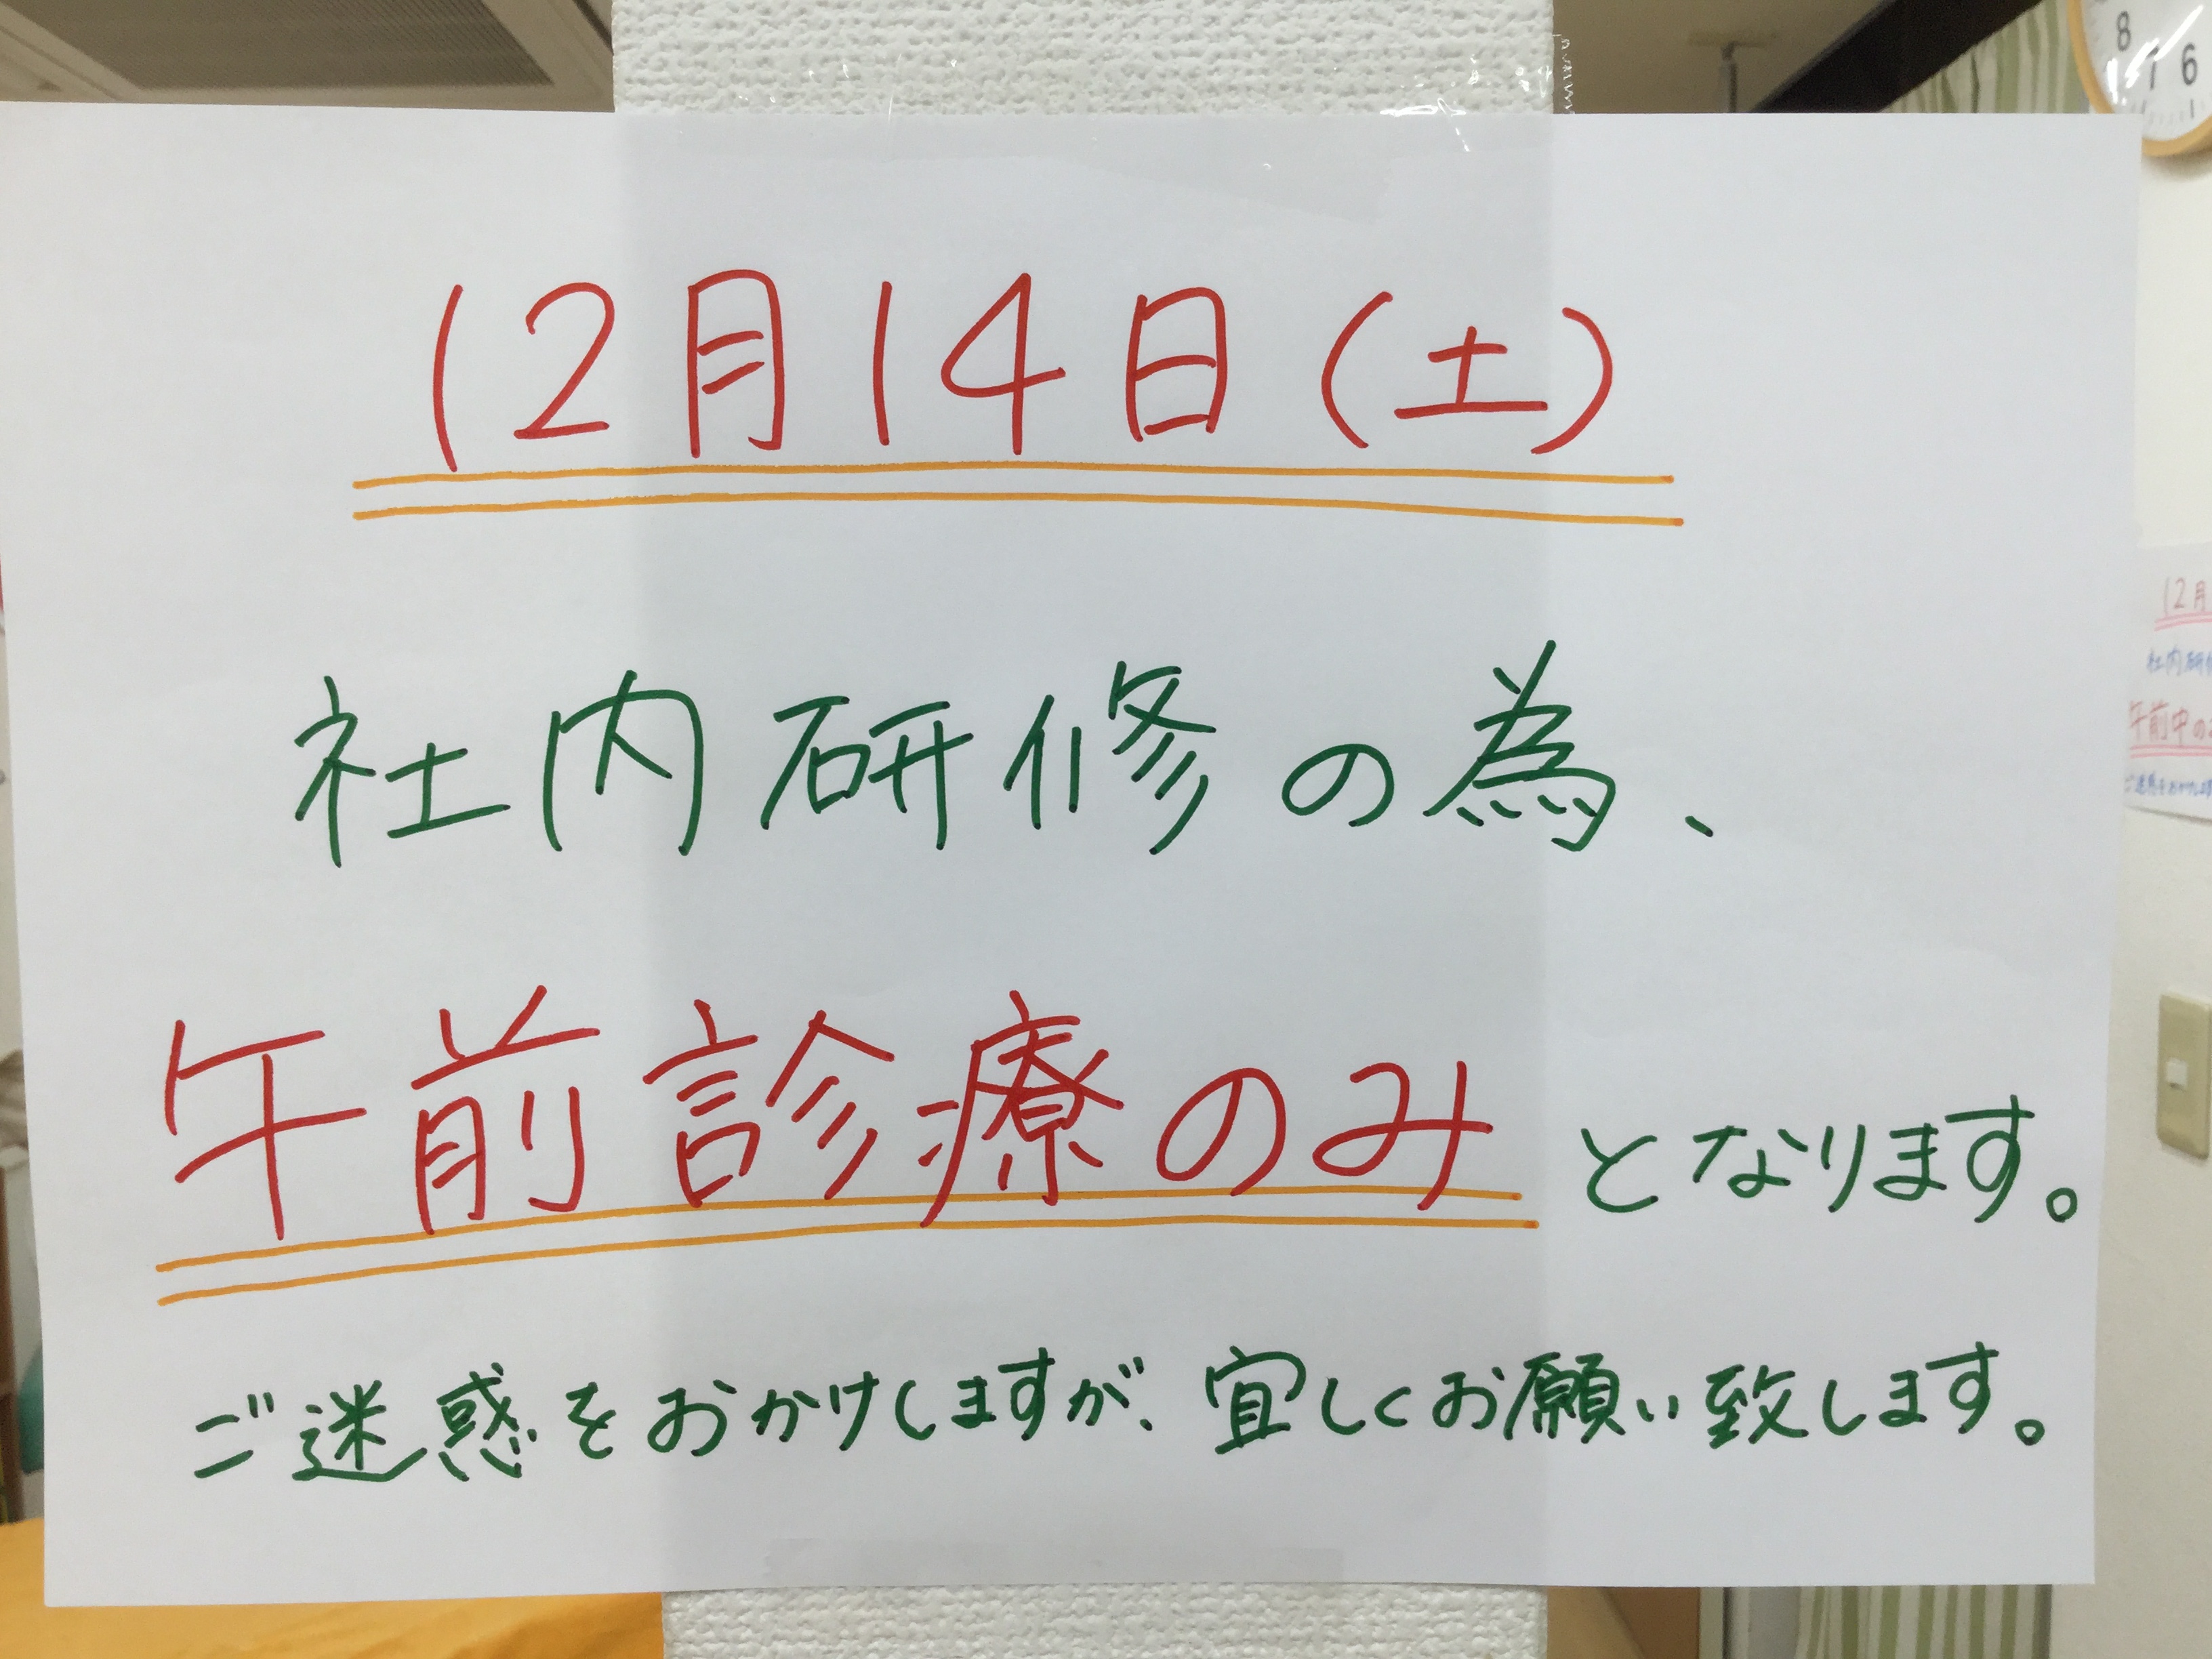 12月14日(土)
社内研修の為、
午前診療のみとなります。
ご迷惑をおかけしますが、宜しくお願い致します。
8
7 6
12月
社内研
午前中の
ご迷惑をおかけしま